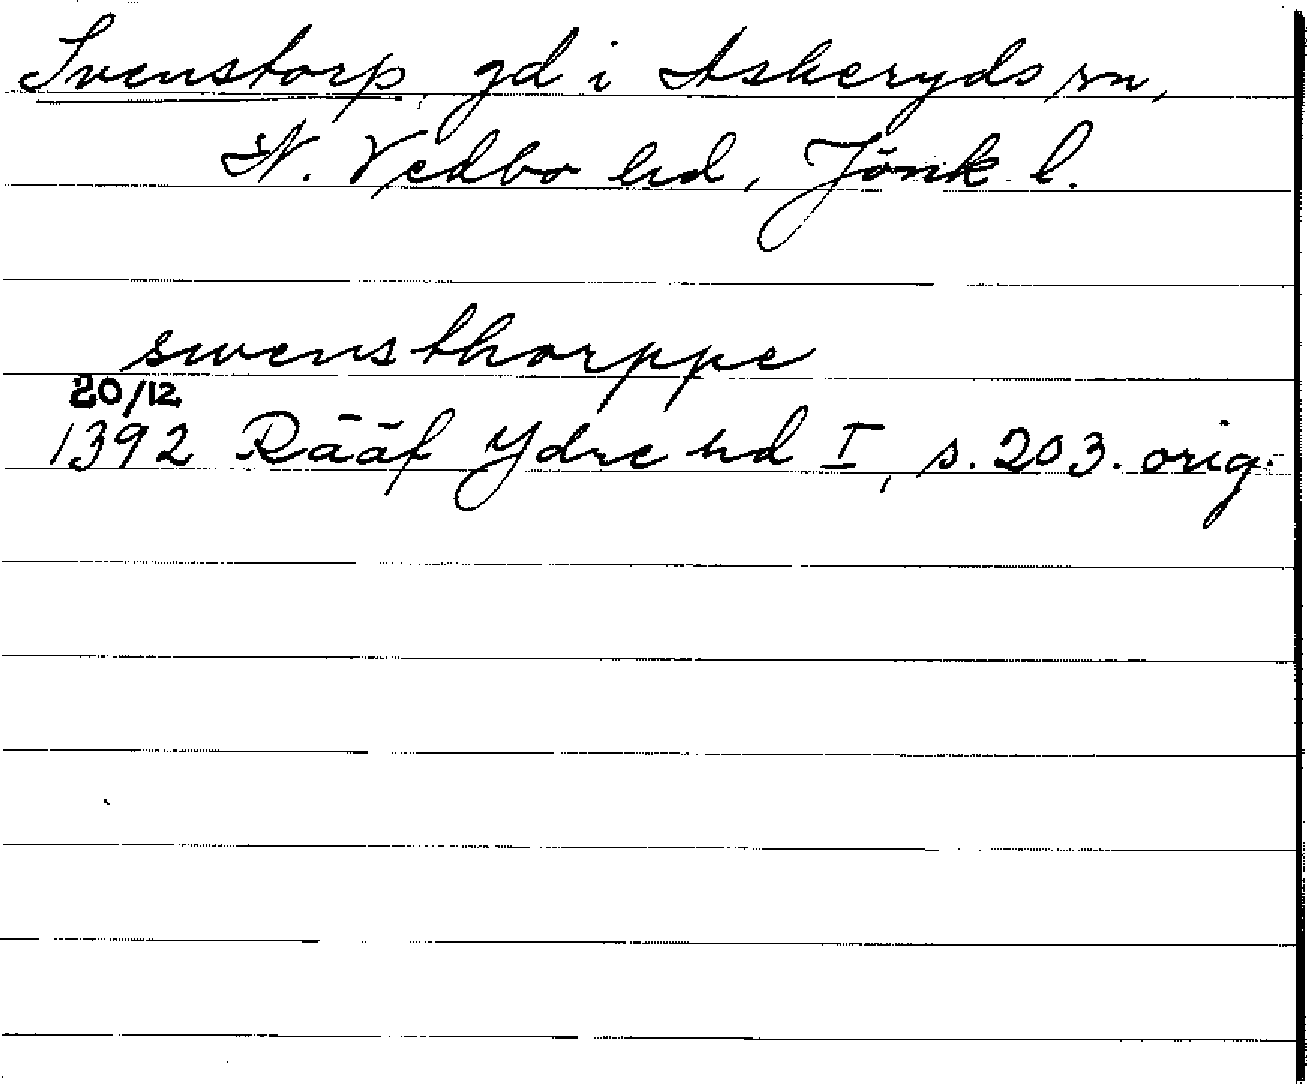 Svenstorp, gd i Askeryds sn,
N. Vedbo hd, Jönk l.
swensthorppe
20/12
1392 Rääf Ydre hd I, s. 203. orig.